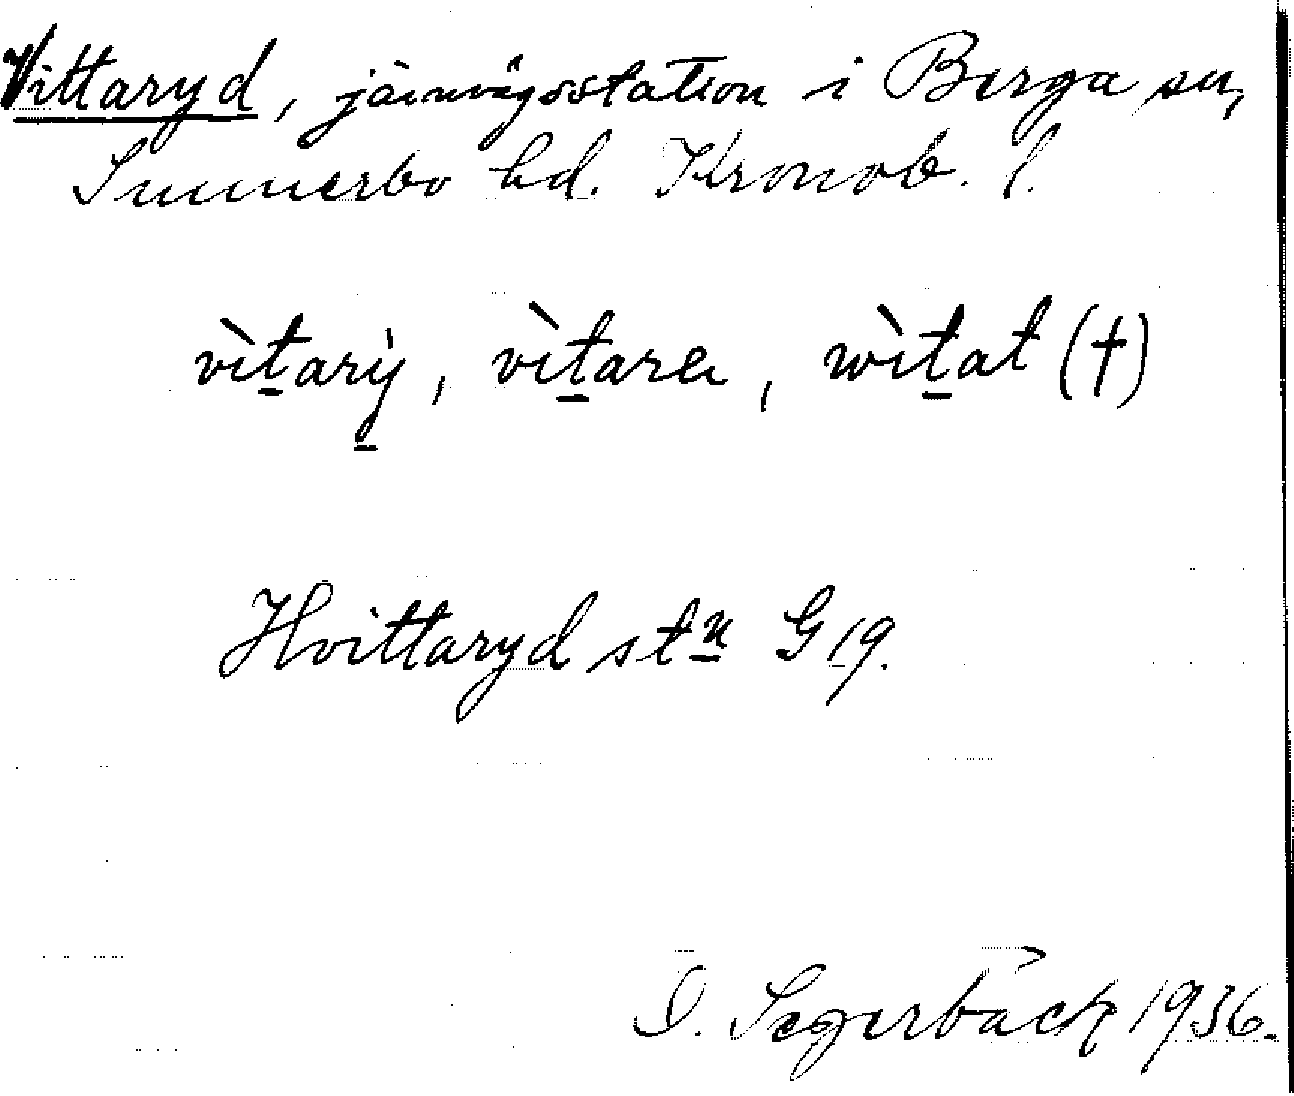 Vittaryd, järnvägsstation i Berga sn,
Sunnerbo hd. Kronob. l.
vìt̠arẏ̠, vìt̠arɐ, wìt̠at (†)
Hvittaryd stn G 19.
D. Segerbäck 1936.